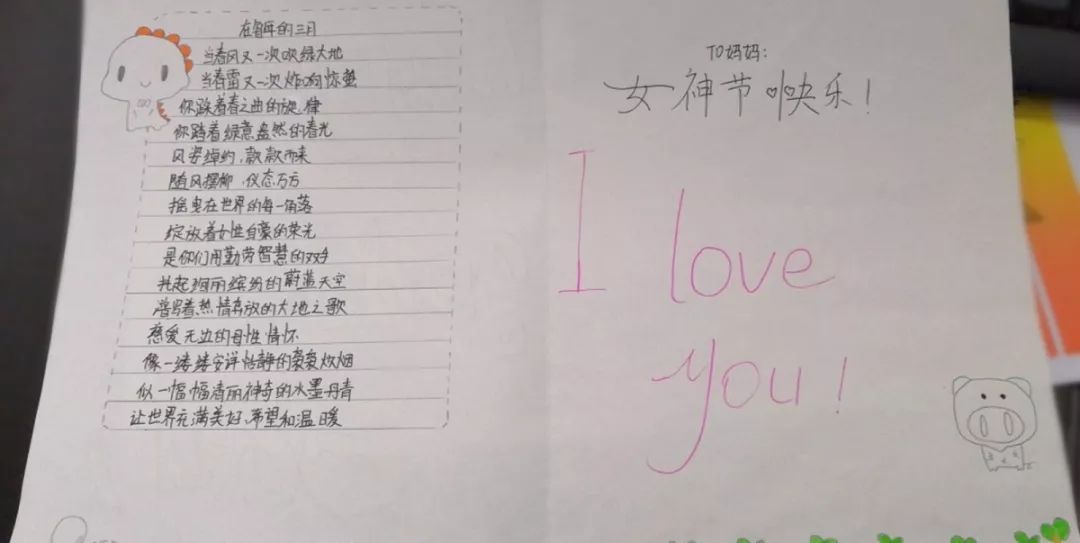 在每年的三月
当春风又一次吹绿大地
当春雷又一次炸响惊蛰
你踩着春之曲的旋律
你踏着绿意盎然的春光
风姿绰约,款款而来
随风摆柳,仪态万方
摇曳在世界的每一角落
绽放着女性自豪的荣光
是你们用勤劳智慧的双手
托起绚丽缤纷的蔚蓝天空
谱写着热情奔放的大地之歌
慈爱无边的母性情怀
像一缕缕安详恬静的袅袅炊烟
似一幅幅清丽神奇的水墨丹青
让世界充满美好、希望和温暖
TO妈妈:
女神节快乐!
I love
you!